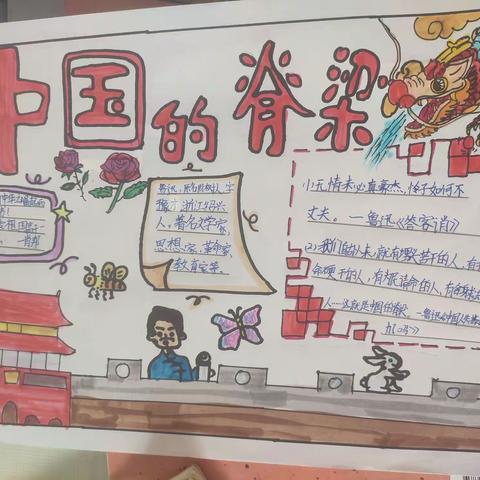 中国的脊梁
鲁迅,原名周树人,字
豫才,浙江绍兴
人,著名文学家,
思想家,革命家,
教育家等
小无情未必真豪杰,怜子如何不
丈夫。—鲁迅《答客诮》
(2)我们自古以来,就有埋头苦干的人,有
命硬干的人,有
人……这就是中国的脊梁。—鲁迅《中国人失掉
力吗》